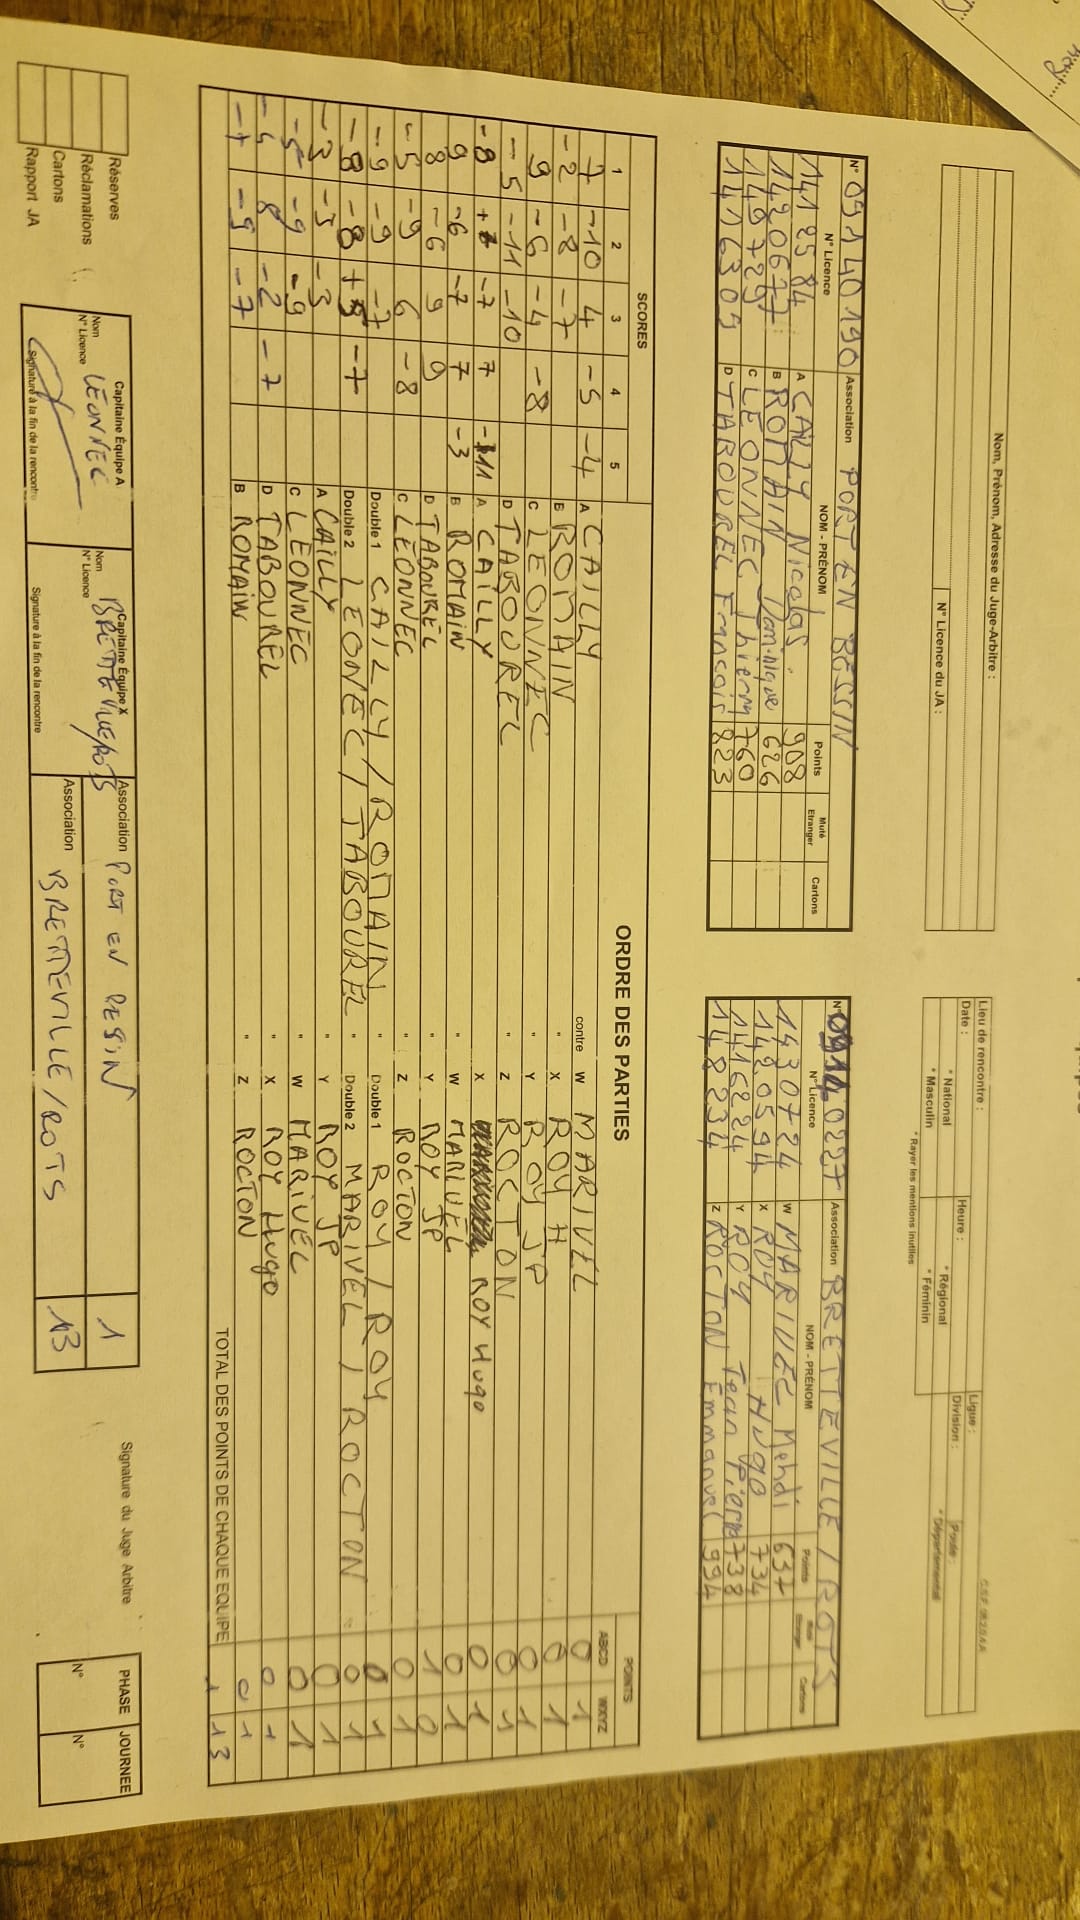 Nom, Prénom, Adresse du Juge-Arbitre :
N° Licence du JA :
Lieu de rencontre :
Date :
Heure :
* National
* Régional
* Masculin
* Féminin
* Rayer les mentions inutiles
Ligue :
Division :
Poule :
* Départemental
N° 09140190 Association PORT EN BESSIN
N° Licence NOM - PRÉNOM Points Muté Etranger Cartons
1412584 A CAILLY Nicolas 908
1420677 B ROMAIN Dominique 626
149729 C LEONNEC Thierry 760
1416309 D TABOUREL François 823
N° 09140227 Association BRETTEVILLE / ROTS
N° Licence NOM - PRÉNOM Points Cartons
1430724 W MARIVEL Mehdi 637
1420594 X ROY Hugo 734
1416224 Y ROY Jean Pierre 738
148234 Z ROCTON Emmanuel 994
SCORES ORDRE DES PARTIES POINTS
1 2 3 4 5 ABCD WXYZ
7 -10 4 -5 -4 A CAILLY contre W MARIVEL 0 1
-2 -8 -7 B ROMAIN " X ROY H 0 1
9 -6 -4 -8 C LEONNEC " Y ROY JP 0 1
-5 -11 -10 D TABOUREL " Z ROCTON 0 1
-8 -7 7 -11 A CAILLY X ROY Hugo 0 1
9 -6 -7 7 -3 B ROMAIN " W MARIVEL 0 1
8 -6 9 9 D TABOUREL " Y ROY JP 1 0
-5 -9 6 -8 C LÉONNEC " Z ROCTON 0 1
-9 -9 -7 Double 1 CAILLY / ROMAIN " Double 1 ROY / ROY 0 1
-8 -8 +5 -7 Double 2 LEONEC / TABOUREL " Double 2 MARIVEL / ROCTON 0 1
-3 -5 -3 A CAILLY " Y ROY JP 0 1
-5 -9 -9 C LEONNEC " W MARIVEL 0 1
-4 8 -2 -7 D TABOUREL " X ROY Hugo 0 1
-7 -9 -7 B ROMAIN " Z ROCTON 0 1
TOTAL DES POINTS DE CHAQUE EQUIPE 1 13
Réserves
Réclamations
Cartons
Rapport JA
Capitaine Équipe A
Nom LÉONNEC
N° Licence
Signature à la fin de la rencontre
Capitaine Équipe X
Nom BRETTEVILLE/ROTS
N° Licence
Signature à la fin de la rencontre
Association PORT EN BESSIN 1
Association BRETTEVILLE / ROTS 13
Signature du Juge Arbitre
PHASE JOURNEE
N° N°